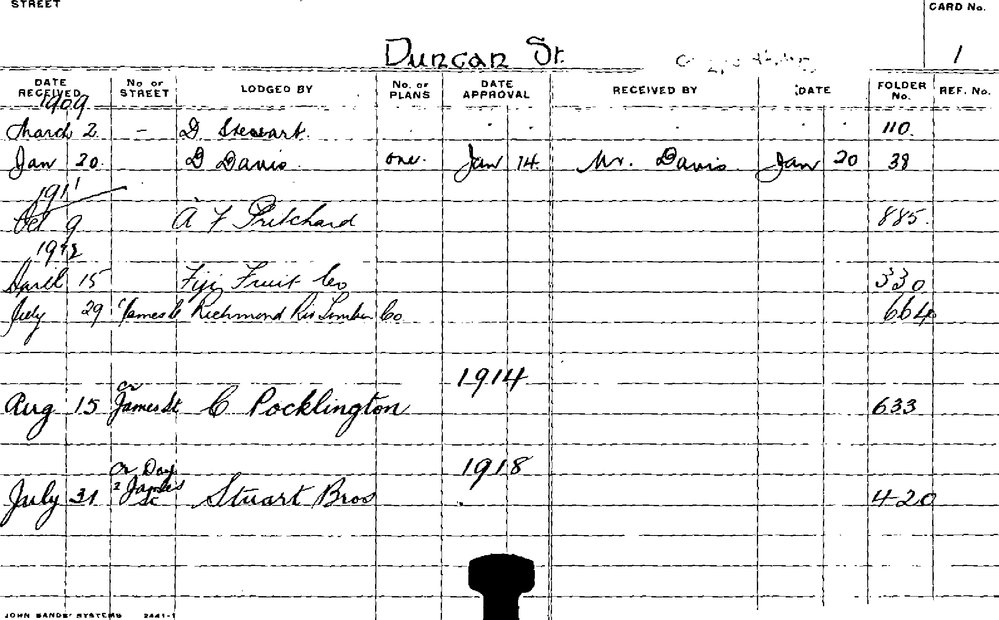 STREET CARD No.
Duncan St. 1
DATE RECEIVED No. of STREET LODGED BY No. of PLANS DATE APPROVAL RECEIVED BY DATE FOLDER No. REF. No.
1909
March 2. - D Stewart. 110.
Jan 20. D Davis. one. Jan 14. Mr. Davis. Jan 20 38
1911
Oct 9 A F Pritchard 885.
1912
April 15 Fiji Fruit Co 330
July 29 James Richmond Riv Timber Co 664
1914
cr
Aug 15 James St C Pocklington 633
1918
Cr Day
July 31 & James St Stuart Bros 420
JOHN SANDS' SYSTEMS 2441-1